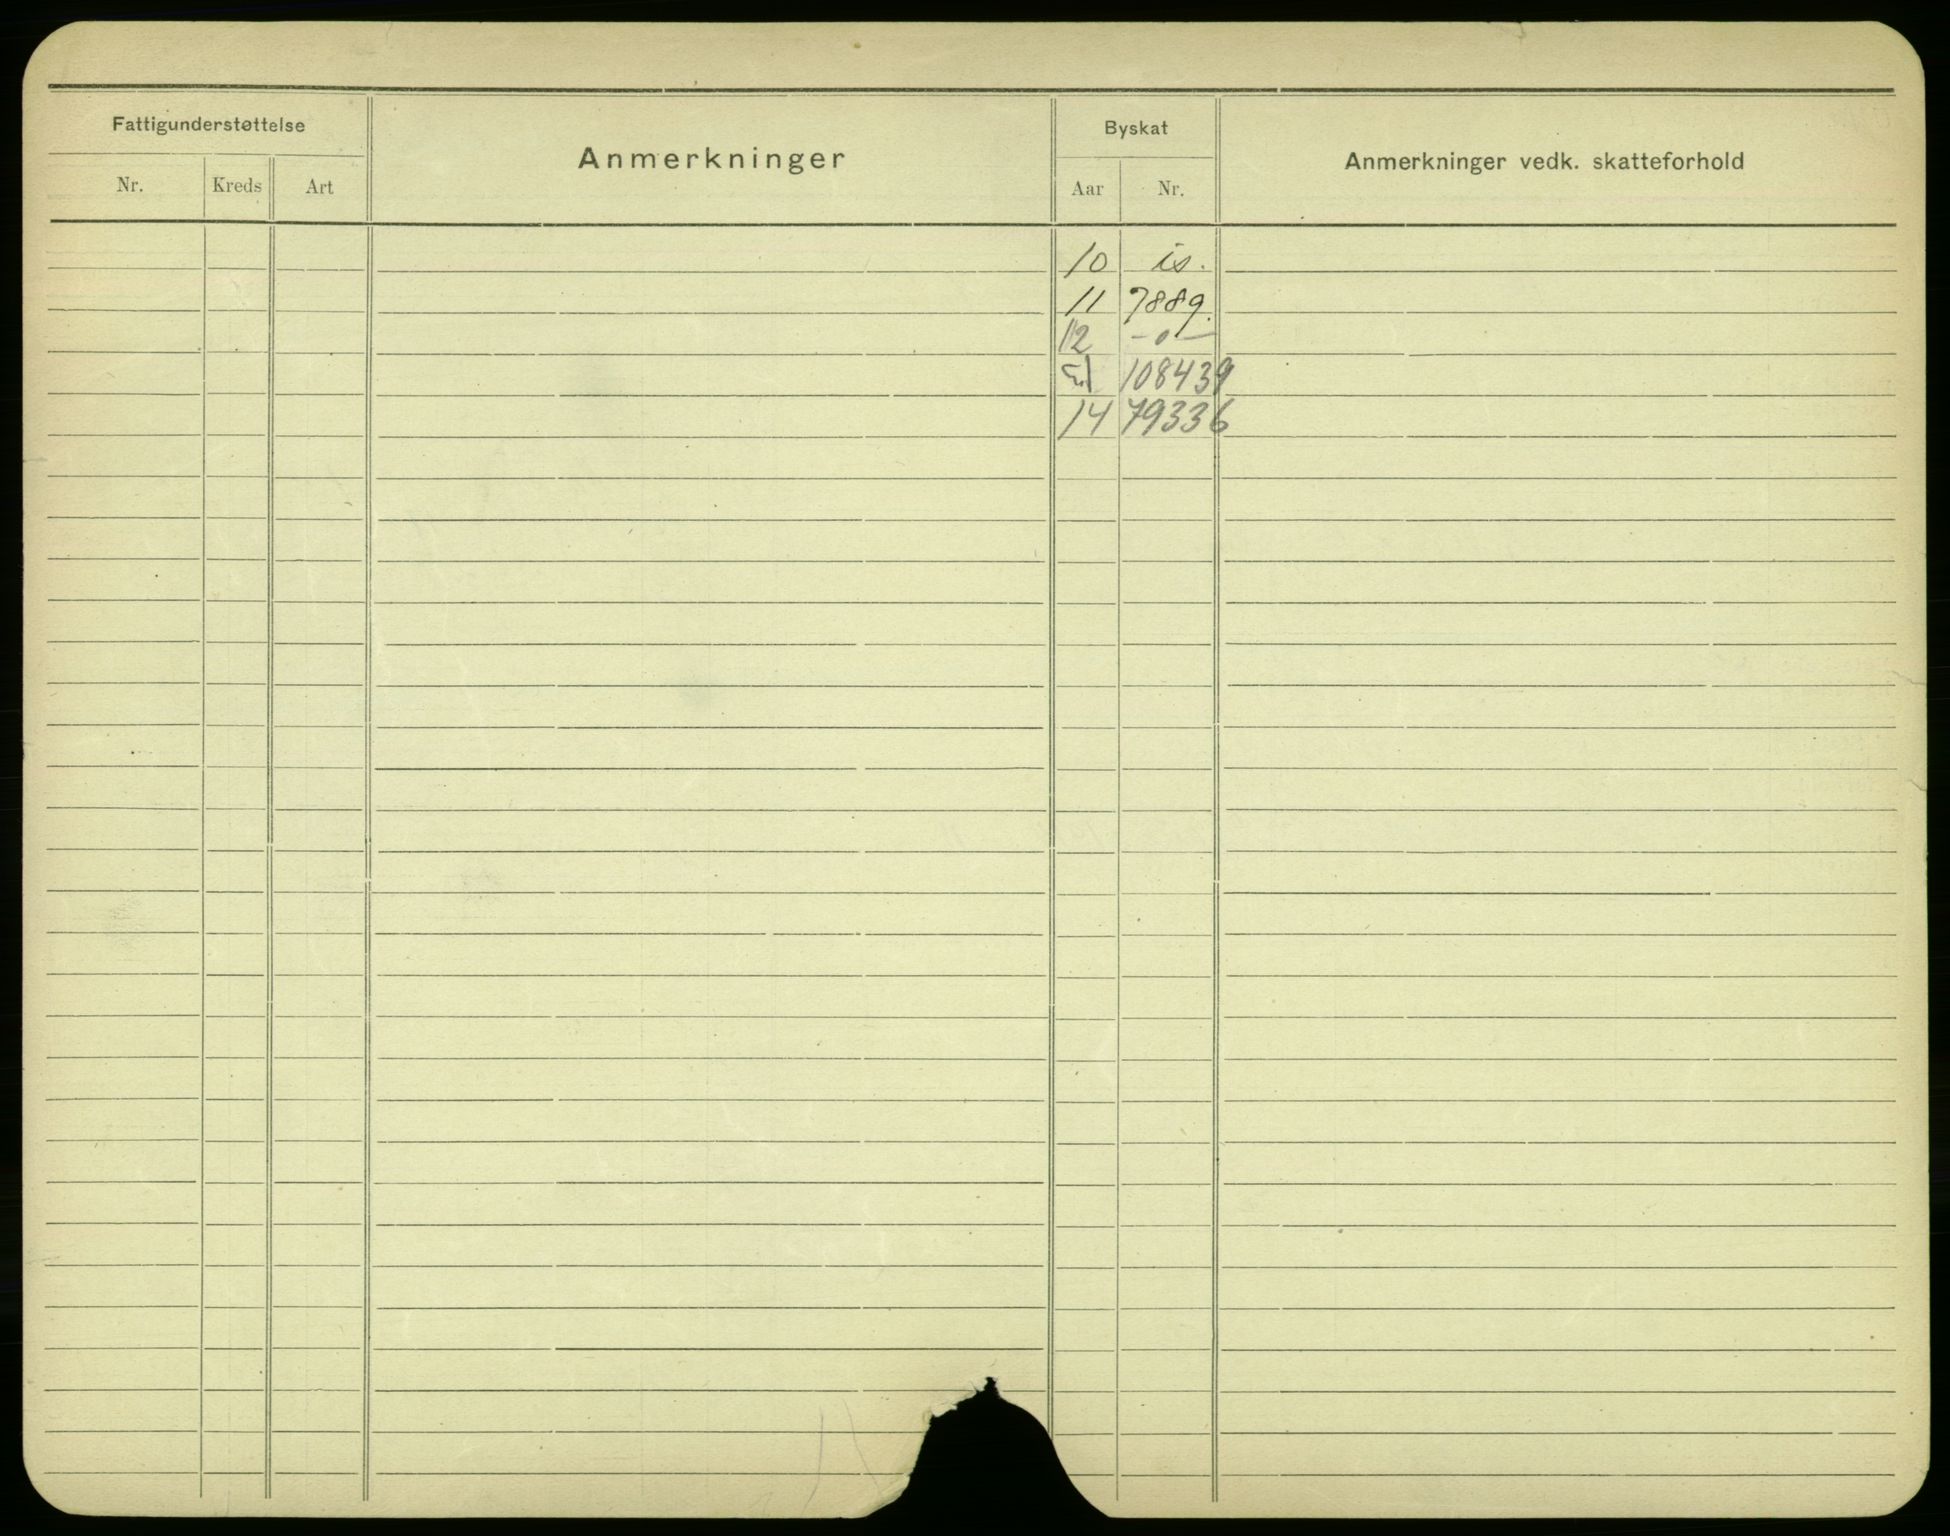 Fattigunderstøttelse
Anmerkninger
Byskat
Anmerkninger vedk. skatteforhold
Nr. Kreds Art
Aar Nr.
10 is.
11 7889.
12 -〃-
108439
14 79336